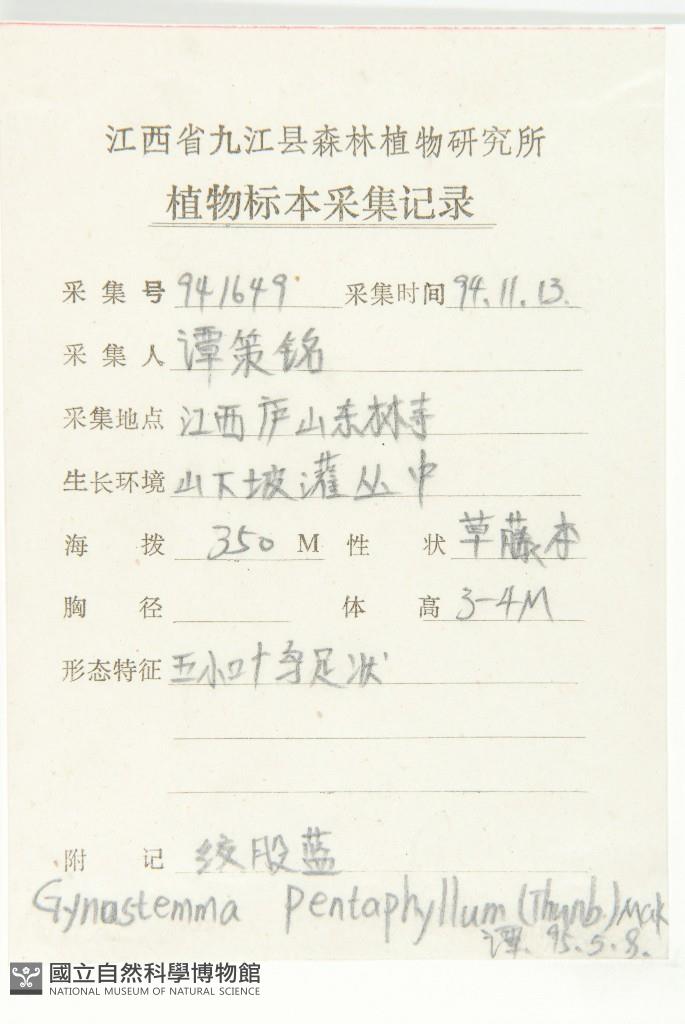 江西省九江县森林植物研究所
植物标本采集记录
采集号 941649 采集时间 94.11.13.
采集人 谭策铭
采集地点 江西庐山东林寺
生长环境 山下坡灌丛中
海拨 350 M 性状 草藤本
胸径 体高 3-4M
形态特征 五小叶鸟足状
附记 绞股蓝
Gynostemma pentaphyllum (Thunb.) Mak
谭. 95.5.8.
國立自然科學博物館
NATIONAL MUSEUM OF NATURAL SCIENCE